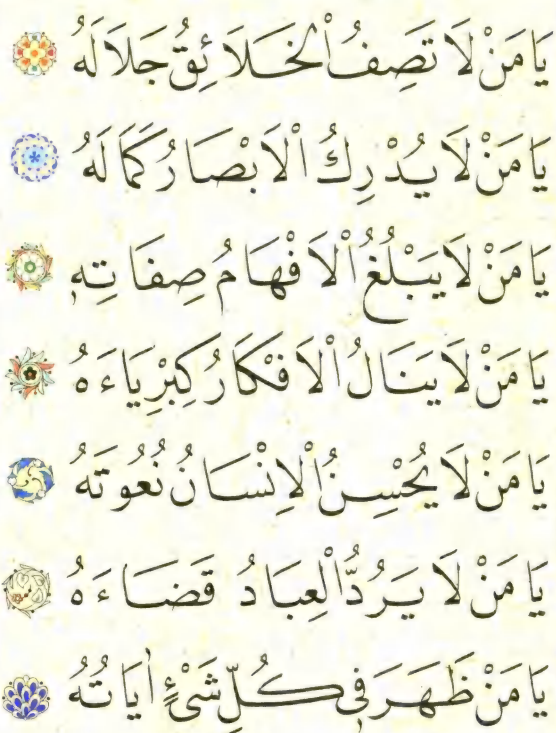 يَا مَنْ لَا تَصِفُ الْخَلَائِقُ جَلَالَهُ
يَا مَنْ لَا يُدْرِكُ الْاَبْصَارُ كَمَالَهُ
يَا مَنْ لَا يَبْلُغُ الْاَفْهَامُ صِفَاتِهِ
يَا مَنْ لَا يَنَالُ الْاَفْكَارُ كِبْرِيَاءَهُ
يَا مَنْ لَا يُحْسِنُ الْاِنْسَانُ نُعُوتَهُ
يَا مَنْ لَا يَرُدُّ الْعِبَادُ قَضَاءَهُ
يَا مَنْ ظَهَرَ فِى كُلِّ شَىْءٍ اٰيَاتُهُ